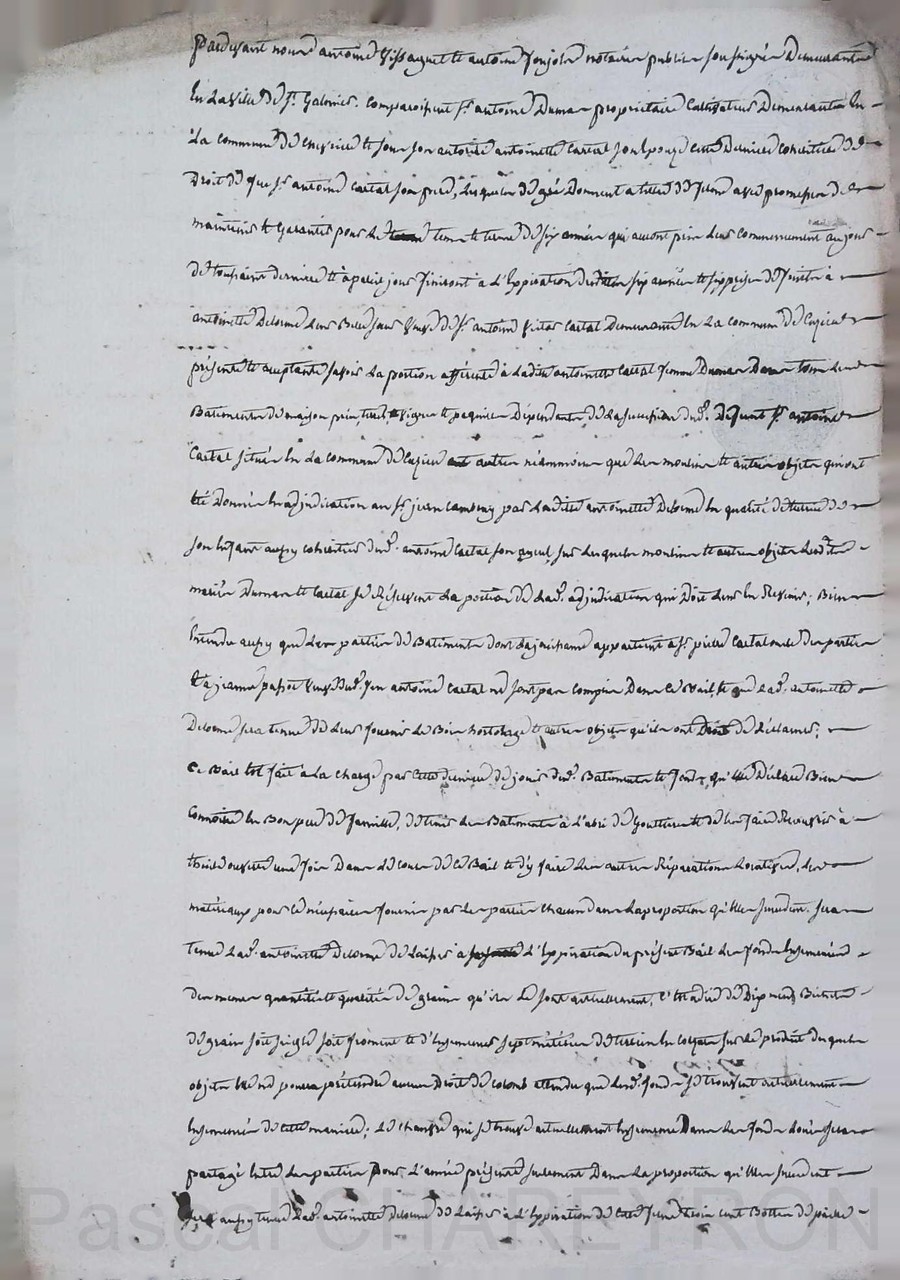 Pardevant nous antoine Vissaguet et antoine Jonjole notaires publics soussignés Demeurants
En La Ville de St. Galmier. Comparoissent Sr. antoine Dumas proprietaire Cultivateur Demeurant En
La commune de et sous son autorité antoinette Cartal son Epouse cette Derniere cohéritiere de
Droit de feu Sr. antoine Cartal son frere, Lesquels de gré Donnent a titre de ferme avec promesse de
maintenir et Garantir pour le tems et terme de six années qui auront pris Leur Commencement au jour
de toussaint derniere et a pareil jour finiront a L'Expiration desdites six années
antoinette Delorme Leur Belle soeur Veuve de Sr. antoine Cartal Demeurante En La Commune de Cuzieu
présente et acceptante savoir La portion afférente à Ladite antoinette Cartal femme Dumas Dans tous Les
Batiments de maison pres, terres, vignes et paquiers Dépendants de La succession dud. Défunt Sr. antoine
Cartal situés En La commune de Cuzieu et autres néammoins que Les moulins et autres objets qui ont
été Donnés En adjudication au Sr. jean par Ladite antoinette Delorme En qualité de tutrice de
son Enfant aussy cohéritier dud. antoine Cartal son ayeul, sur Lesquels moulins et autres objets Lesdits
mariés Dumas et Cartal se Réservent La portion de Lad. adjudication qui Doit Leur En Revenir; Bien
Entendu aussy que Les parties de Batiments dont La jouissance appartient a Sr. pierre Cartal des parties
Et a jeanne Veuve dud. feu antoine Cartal ne sont pas compris Dans ce Bail, et que Lad. antoinette
Delorme sera tenue de Leur fournir Le Bois hortolage et autres objets qu'ils ont Droit de Réclamer;
Ce Bail Est fait a La charge par Cette derniere de jouir desd. Batiments et fonds qu'Elle Déclare Bien
Connoitre En Bon pere de famille, de tenir Les Batiments à L'abri de Gouttieres et de Les faire Recouvrir à
thuile ouverte une fois Dans Le cours de Ce Bail et d'y faire Les autres Réparations Locatives, Les
matériaux pour Ce nécessaires fournis par Les parties chacun dans La proportion qu'Elles Sera
tenue Lad. antoinette Delorme de Laisser a L'Expiration du présent Bail Les fonds Ensemencés
des memes quantités et qualités de grains qu'ils Le sont actuellement, C'Est a dire de Bichets
de grain soit seigle soit froment et d'Ensemencer sept métérées de terrein En sur Le produit duquel
objets Elle ne pourra prétendre aucun Droit de colone attendu que Lesd. fonds se trouvent actuellement
Ensemencés de Cette maniere; Le chanvre qui se trouve actuellement Ensemencé Dans Les fonds sera
partagé Entre Les parties Pour L'année présente seulement Dans La proportion qu'Elles
Sera aussy tenue Lad. antoinette Delorme de Laisser a L'Expiration de Cette ferme trois cent Bottes de paille
Pascal CHAREYRON